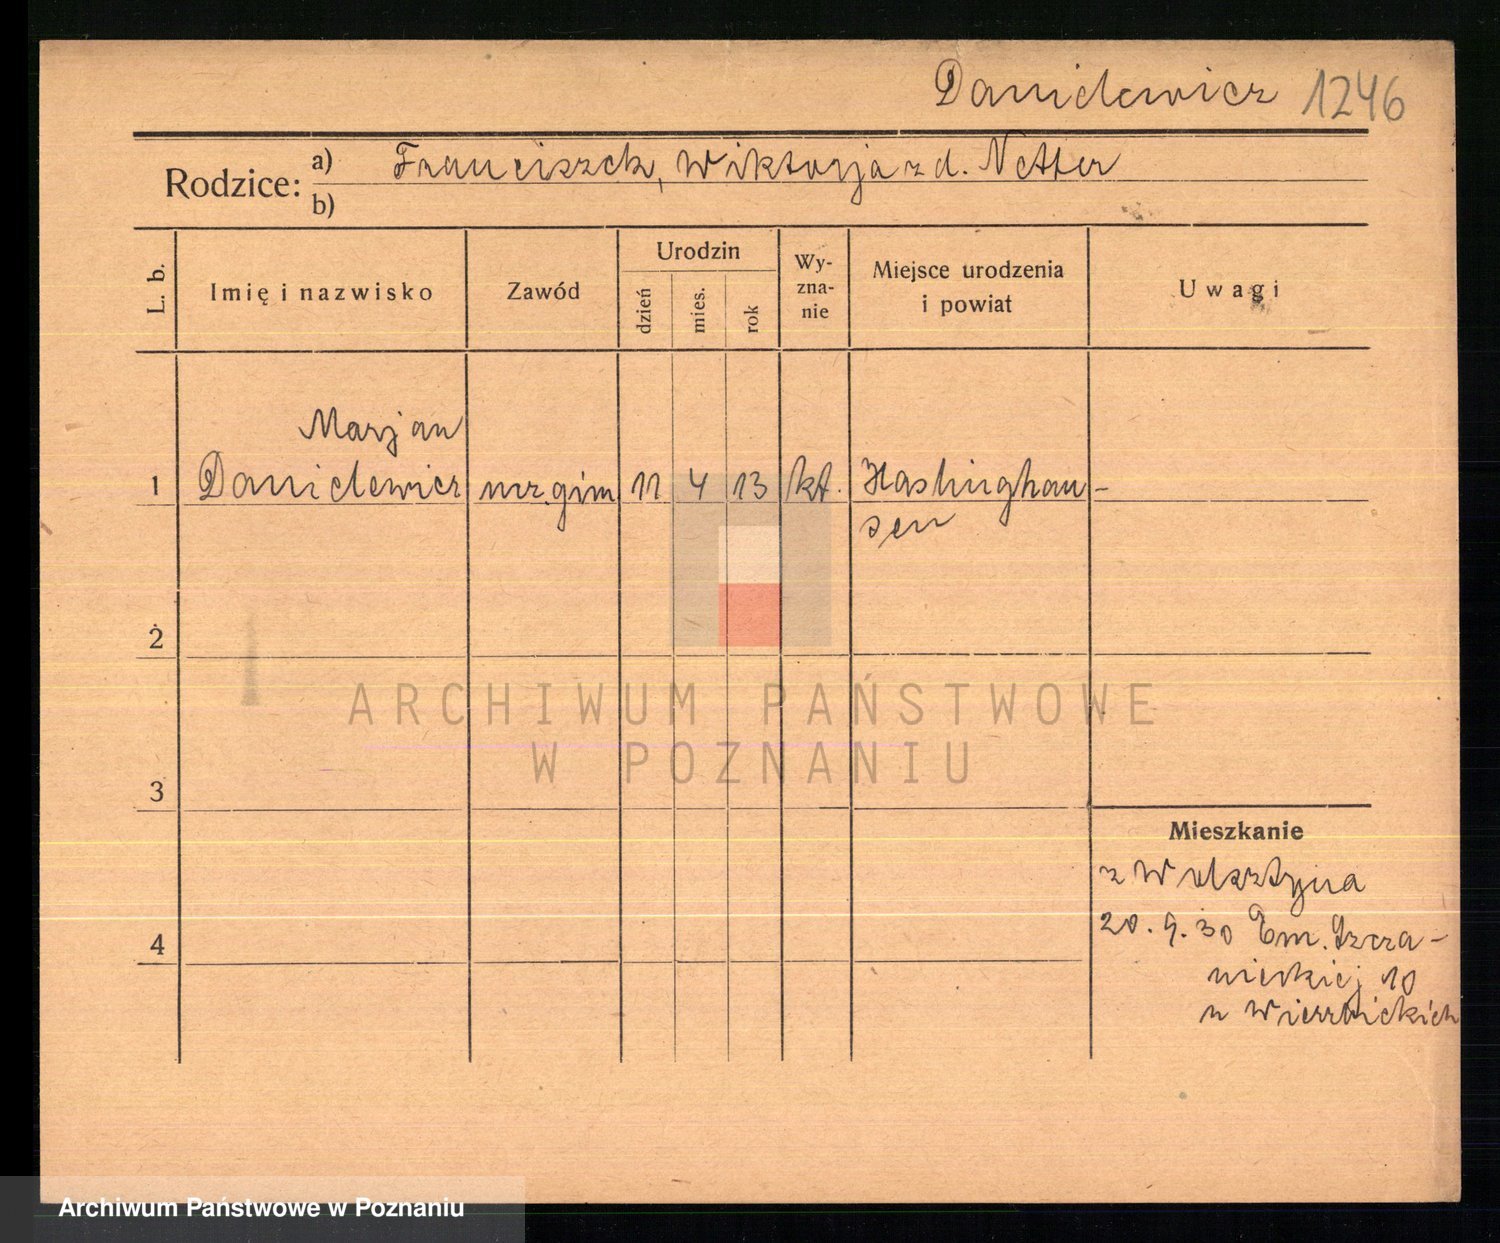 Danielewicz 1246
Rodzice: a) Franciszek, Wiktorja z d. Netter
b)
L. b. Imię i nazwisko Zawód Urodzin dzień mies. rok Wyznanie Miejsce urodzenia i powiat Uwagi
Marjan
1 Danielewicz ucz. gim 11 4 13 kt. Haslinghau-
sen
2
3
4
Mieszkanie
z Wolsztyna
20.9.30 Em. Szcza-
nieckiej 10
u Wierzbickich
ARCHIWUM PAŃSTWOWE
W POZNANIU
Archiwum Państwowe w Poznaniu